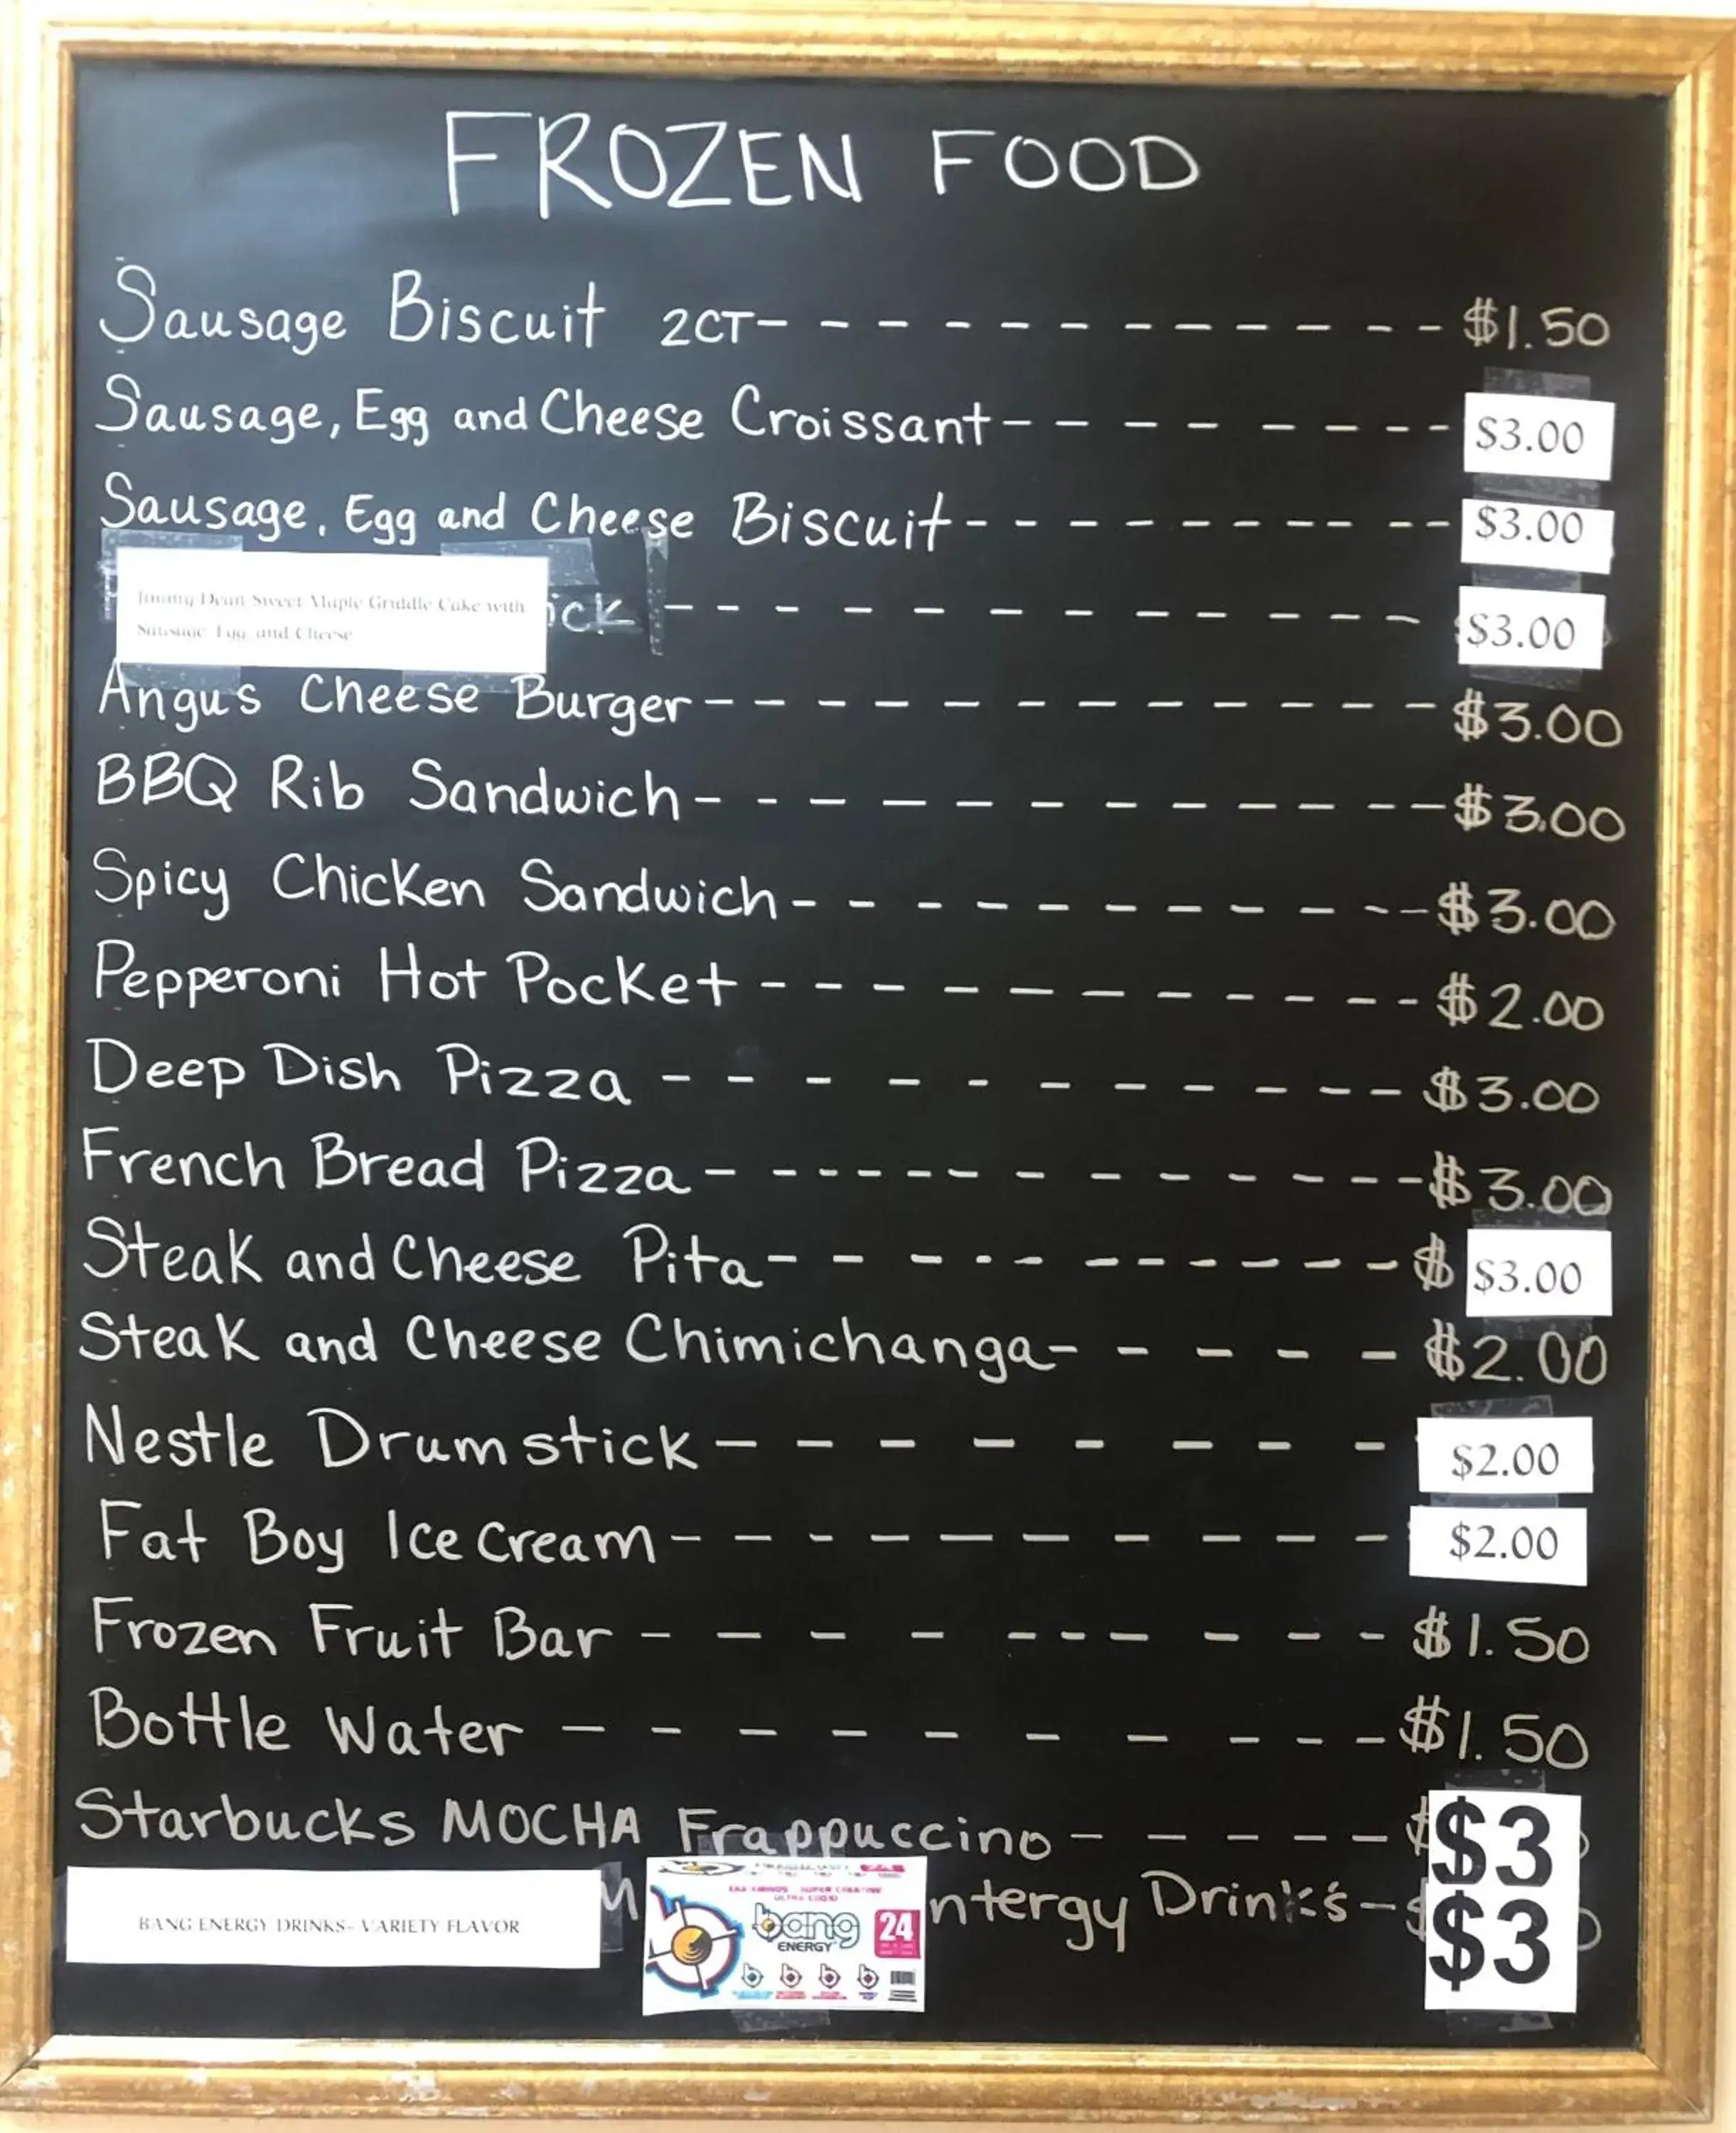 FROZEN FOOD
Sausage Biscuit 2CT- - - - - - - - - - - - $1.50
Sausage, Egg and Cheese Croissant- - - - - - - - - $3.00
Sausage, Egg and Cheese Biscuit- - - - - - - - - - - $3.00
Jimmy Dean Sweet Maple Griddle Cake with
Sausage, Egg, and Cheese
ick - - - - - - - - - - - $3.00
Angus Cheese Burger- - - - - - - - - - - - $3.00
BBQ Rib Sandwich- - - - - - - - - - - - - $3.00
Spicy Chicken Sandwich- - - - - - - - - - - - $3.00
Pepperoni Hot Pocket - - - - - - - - - - - - $2.00
Deep Dish Pizza - - - - - - - - - - - - $3.00
French Bread Pizza- - - - - - - - - - - - - - $3.00
Steak and Cheese Pita- - - - - - - - - - - - $ $3.00
Steak and Cheese Chimichanga- - - - - $2.00
Nestle Drumstick - - - - - - - - - $2.00
Fat Boy Ice Cream- - - - - - - - - - - $2.00
Frozen Fruit Bar - - - - - - - - - - - $1.50
Bottle Water - - - - - - - - - - - $1.50
Starbucks MOCHA Frappuccino - - - - - $3
BANG ENERGY DRINKS- VARIETY FLAVOR
M
bang
ENERGY
24
ntergy Drink's- $3